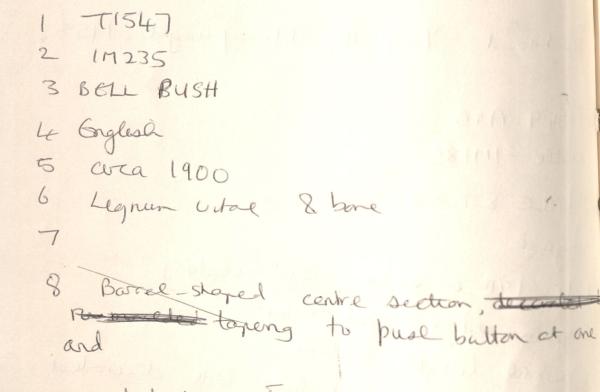 1 T1547
2 1M235
3 BELL BUSH
4 English
5 circa 1900
6 Lignum vitae & bone
7
8 Barrel-shaped centre section,
tapering to push button at one
and